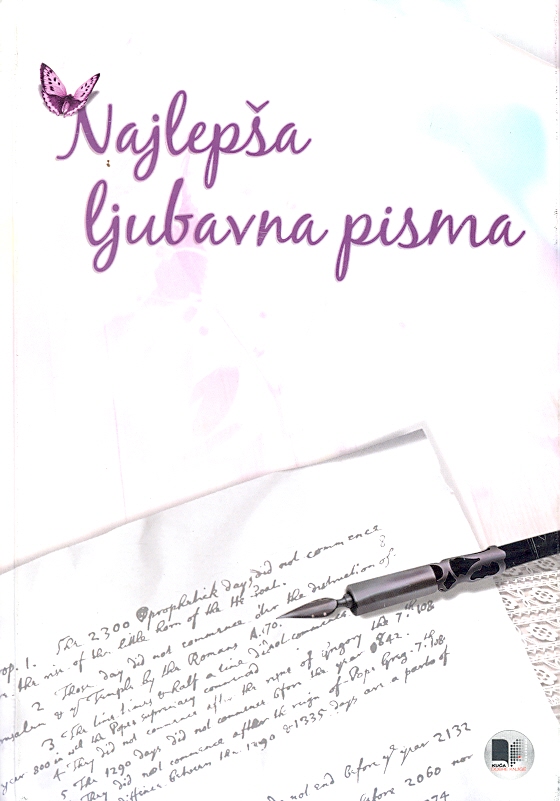 Najlepša
ljubavna pisma
Prop. 1. The 2300 prophetick days did not commence
the rise of the little horn of the He Goat. 8
2 Those day did not commence the destruction of
Jerusalem & ye Temple by the Romans A. 70.
3. The time times & half a time did not commence
year 800 in wch the Popes supremacy commenced
4 They did not commence after the reigne of Gregory the 7th. 1084
5 The 1290 days did not commence before the year 842.
They did not commence after the reign of Pope Greg. 7th. 1084
difference between the 1290 & 1335 days are a parts of
not end before ye year 2132
before 2060 nor
KUĆA
DOBRE KNJIGE